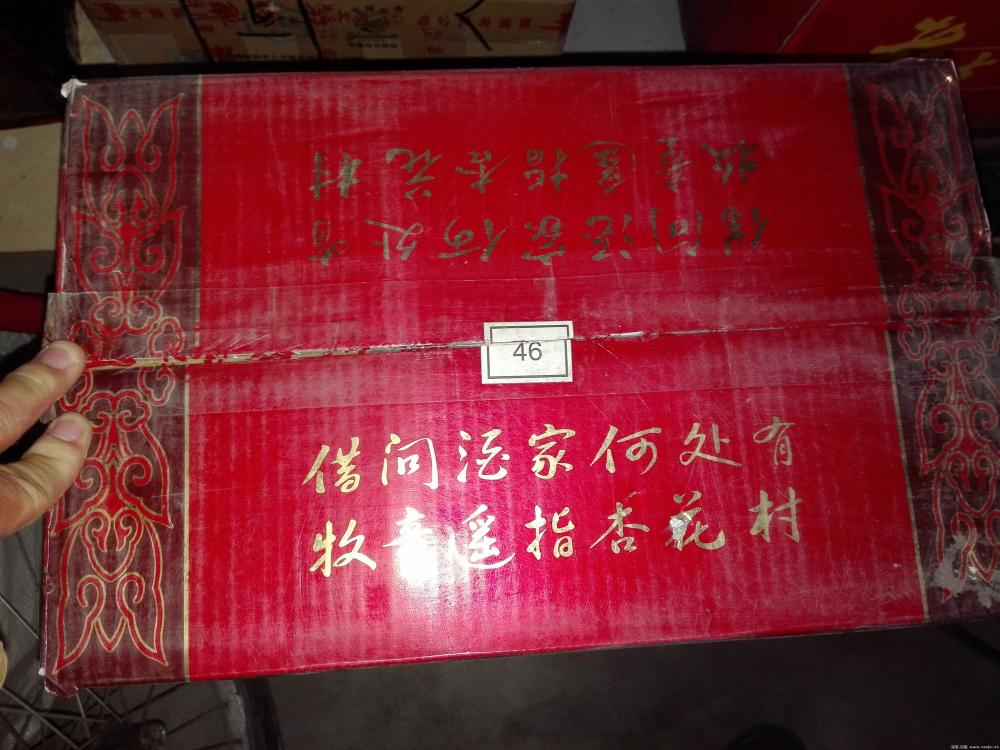 牧童遥指杏花村
借问酒家何处有
46
借问酒家何处有
牧童遥指杏花村